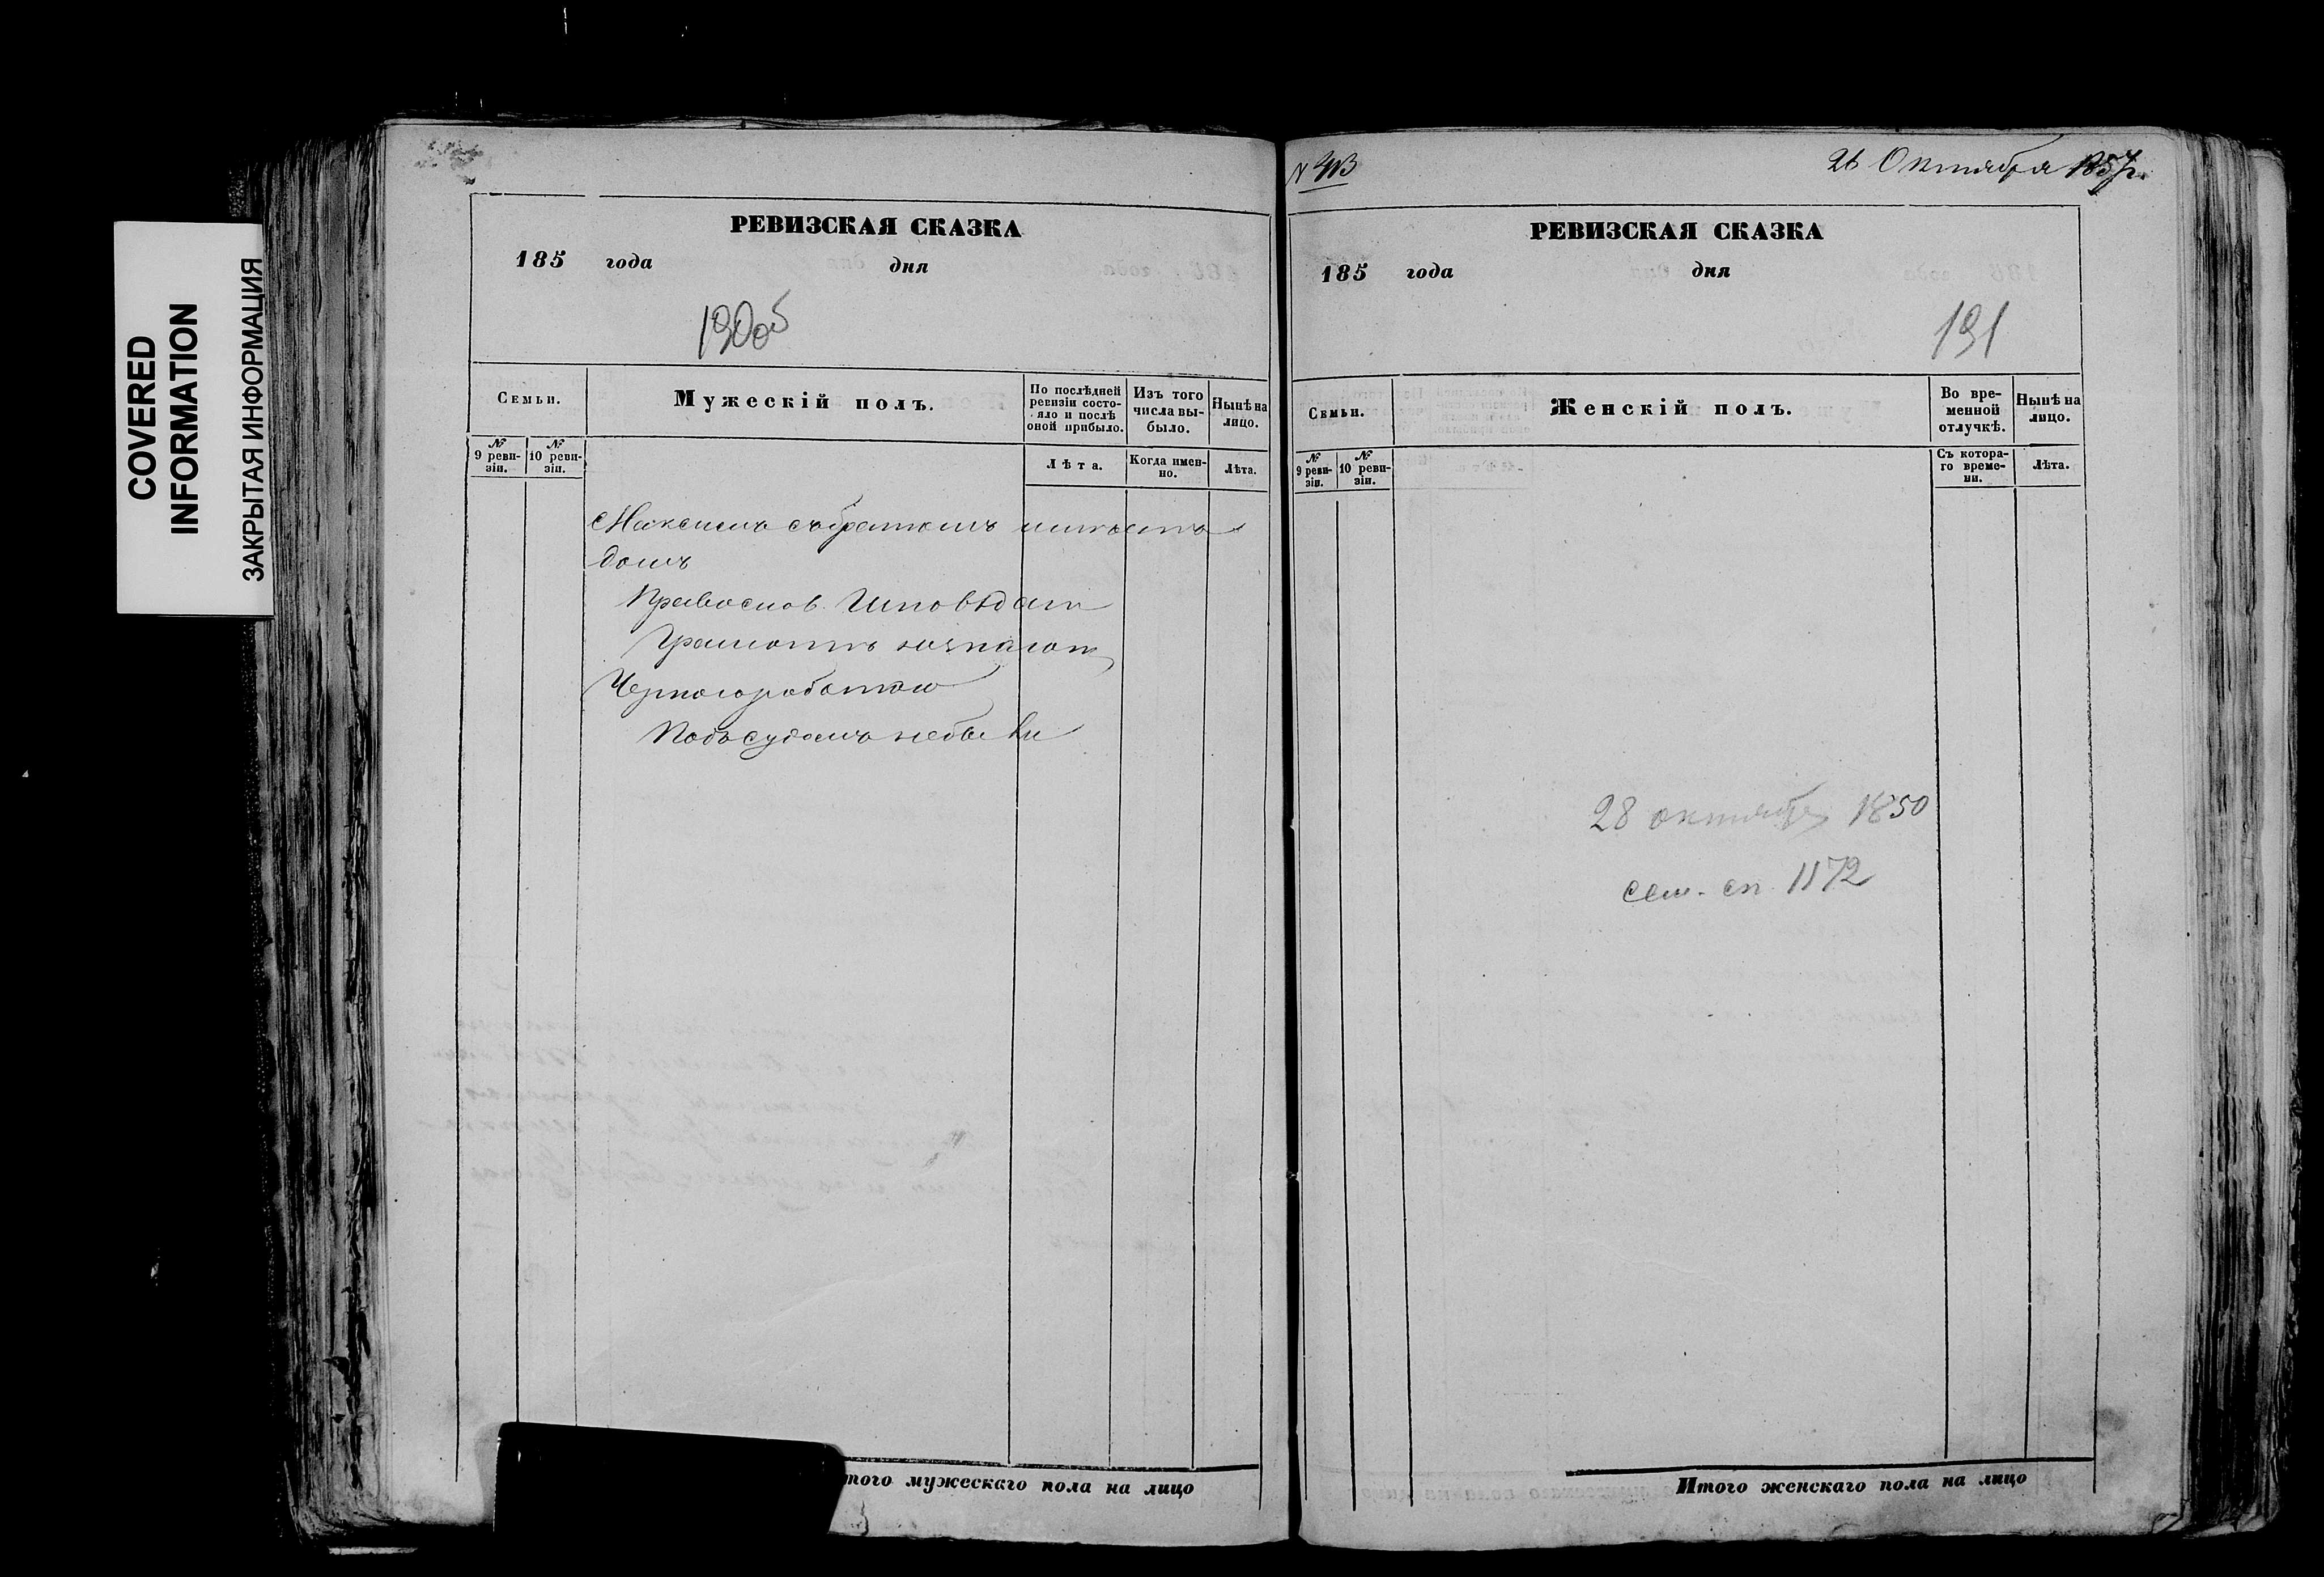 COVERED
INFORMATION
ЗАКРЫТАЯ ИНФОРМАЦИЯ
РЕВИЗСКАЯ СКАЗКА
185 года дня
190об
Семьи.
Мужескій полъ.
По послѣдней ревизіи состояло и послѣ оной прибыло.
Изъ того числа выбыло.
Нынѣ на лицо.
№ 9 ревизіи.
№ 10 ревизіи.
Лѣта.
Когда именно.
Лѣта.
Максимъ съ братомъ имѣетъ
домъ
Православ. Исповѣдан
Грамотѣ незнают
Черн
Подъ судомъ небыли
того мужескаго пола на лицо
26 Октября 1857г.
РЕВИЗСКАЯ СКАЗКА
185 года дня
191
Семьи.
Женскій полъ.
Во временной отлучкѣ.
Нынѣ на лицо.
№ 9 ревизіи.
№ 10 ревизіи.
Съ котораго времени.
Лѣта.
28 октября 1850
сем. сп. 1172
Итого женскаго пола на лицо